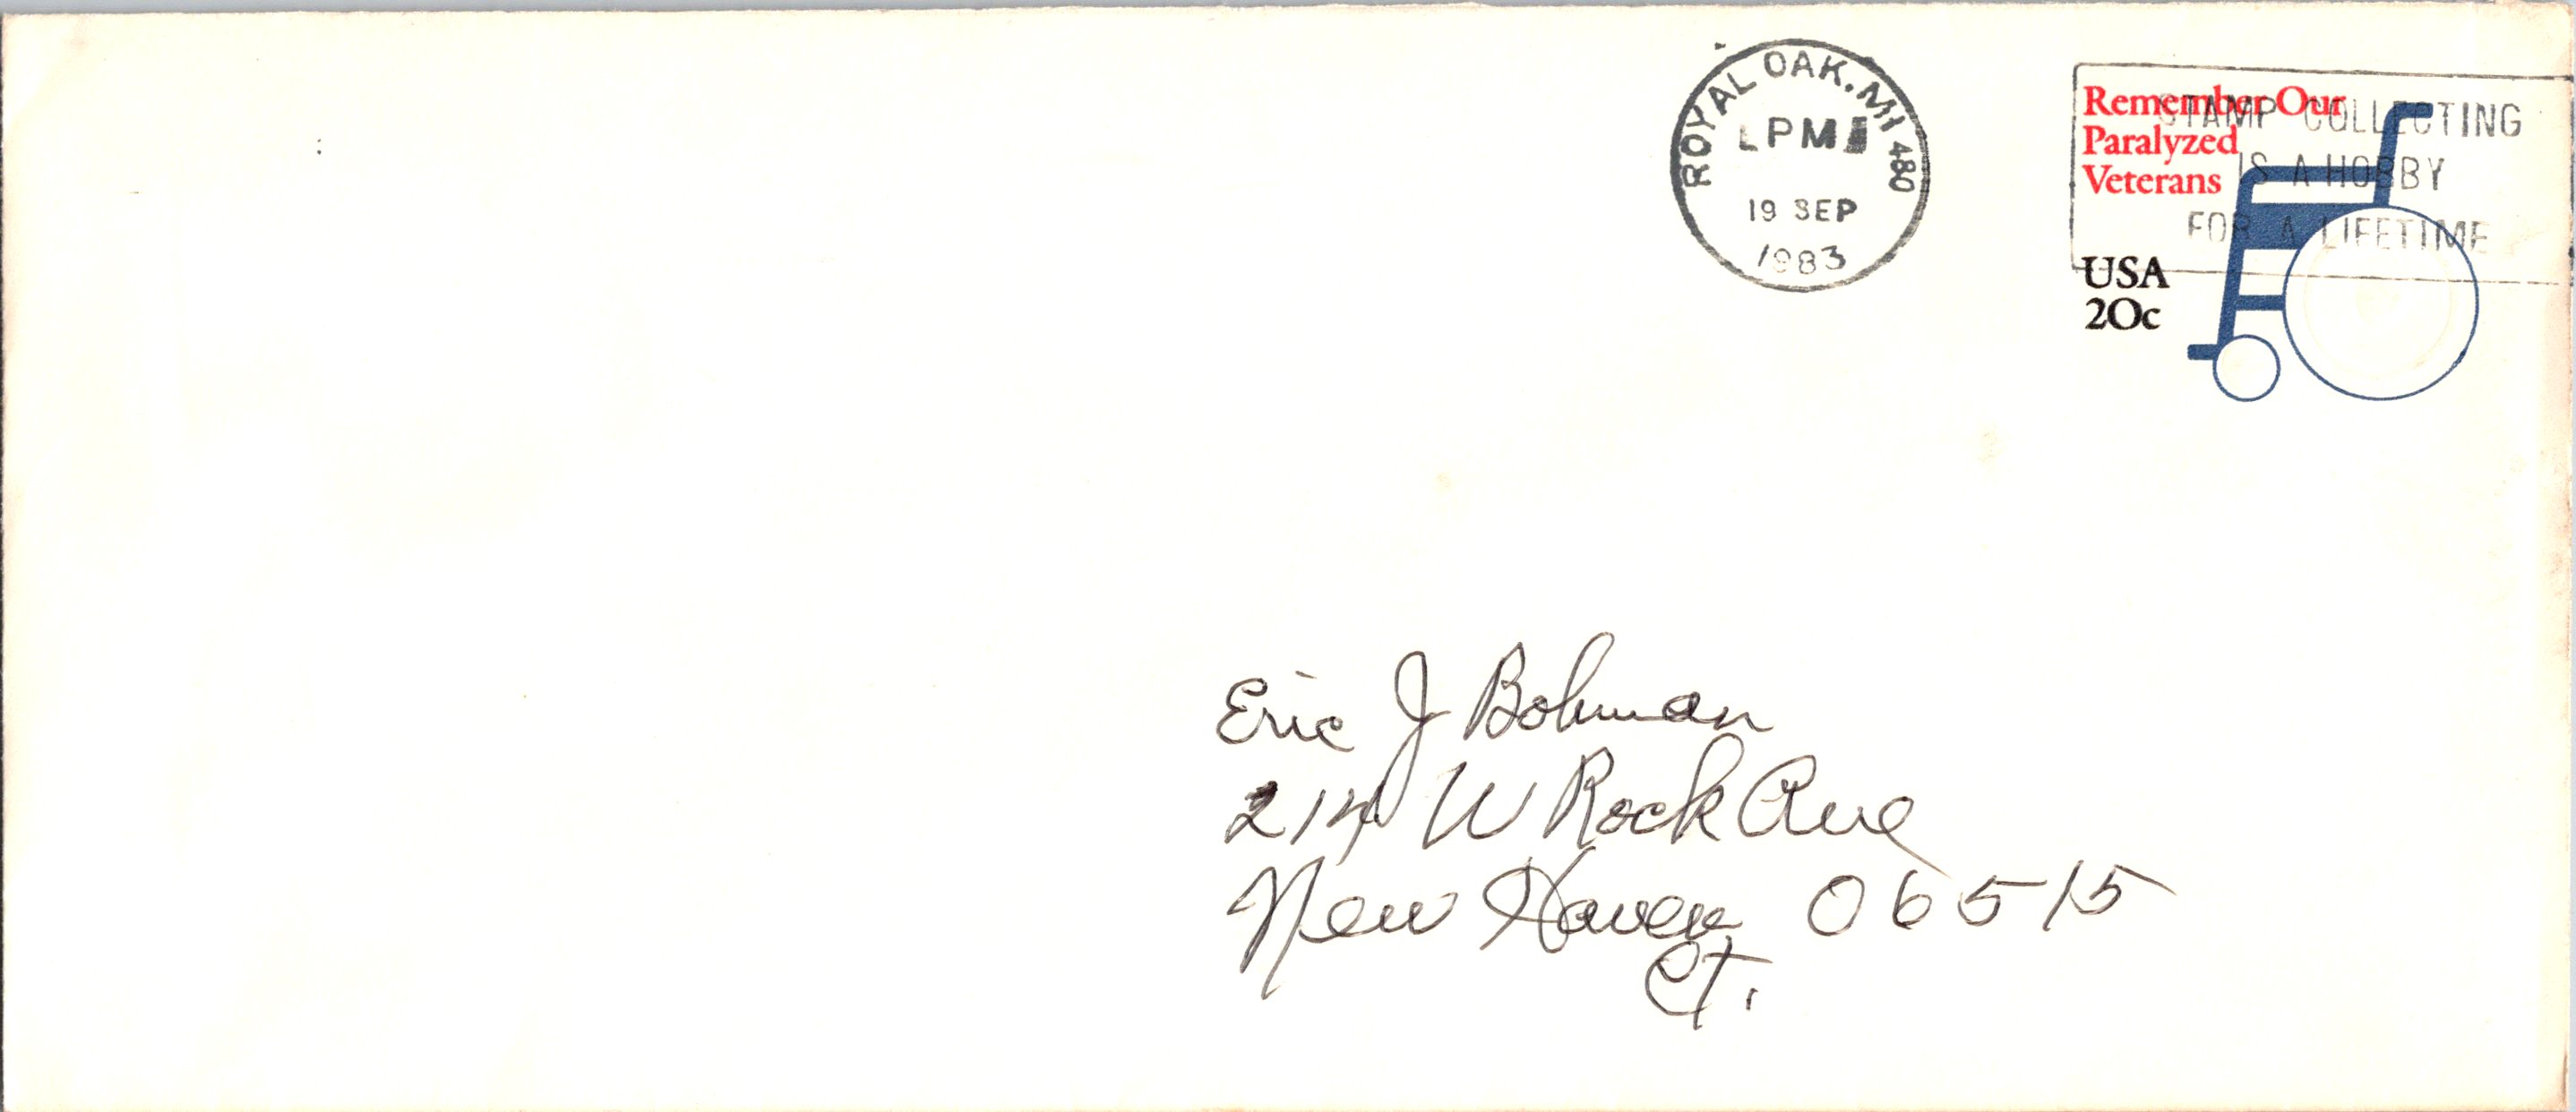 ROYAL OAK, MI 480
PM
19 SEP
1983
Remember Our
Paralyzed
Veterans
USA
20c
STAMP COLLECTING
IS A HOBBY
FOR A LIFETIME
Eric J Bohman
214 W Rock Ave
New Haven 06515
Ct.